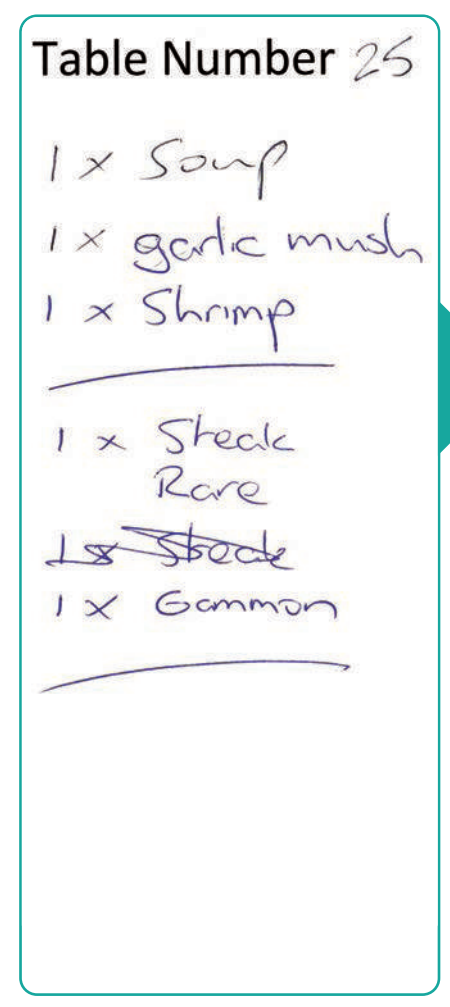 Table Number 25
1 x Soup
1 x garlic mush
1 x Shrimp
1 x Steak
Rare
1 x Steak
1 x Gammon